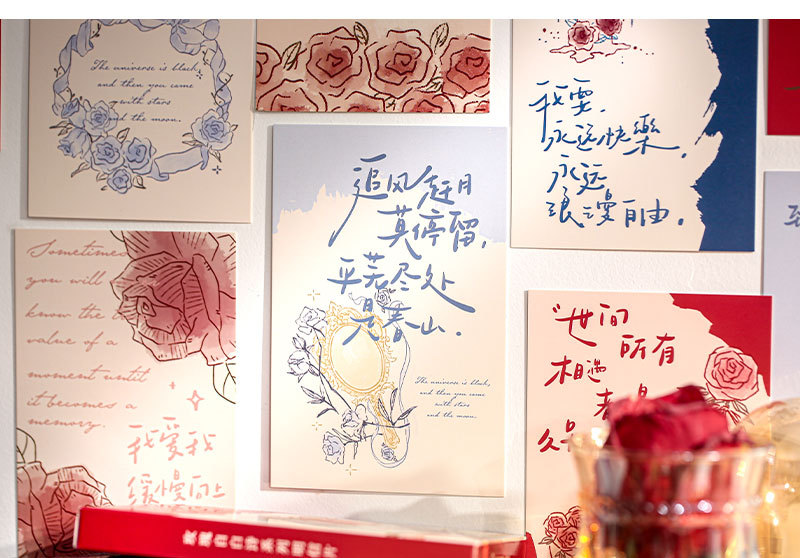 The universe is black,
and then you came
with stars
and the moon.
我要,
永远快樂,
永远
浪漫自由.
追风赶月
莫停留,
平芜尽处
是春山.
The universe is black,
and then you came
with stars
and the moon.
Sometimes
you will
know the
value of a
moment until
it becomes a
memory.
我爱我
缓慢向上
“世间
所有
相遇
都是
久
玫瑰自白诗系列明信片